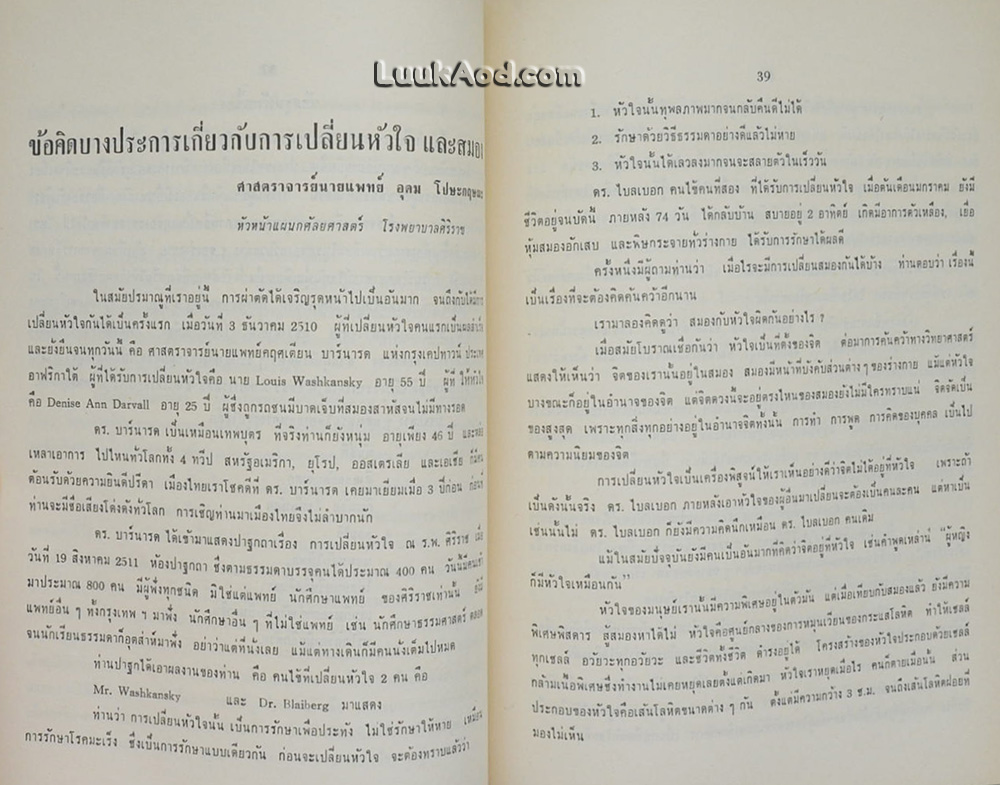 LuukAod.com
ข้อคิดบางประการเกี่ยวกับการเปลี่ยนหัวใจ และสมอง
ศาสตราจารย์นายแพทย์ อุดม โปษะกฤษณะ
หัวหน้าแผนกศัลยศาสตร์ โรงพยาบาลศิริราช
ในสมัยปรมาณูที่เราอยู่นี้ การผ่าตัดได้เจริญรุดหน้าไปเป็นอันมาก จนถึงกับได้มีการ
เปลี่ยนหัวใจกันได้เป็นครั้งแรก เมื่อวันที่ 3 ธันวาคม 2510 ผู้ที่เปลี่ยนหัวใจคนแรกเป็นผลสำเร็จ
และยังยืนจนทุกวันนี้ คือ ศาสตราจารย์นายแพทย์คฤศเตียน บาร์นารด แห่งกรุงเคปทาวน์ ประเทศ
อาฟริกาใต้ ผู้ที่ได้รับการเปลี่ยนหัวใจคือ นาย Louis Washkansky อายุ 55 ปี ผู้ที่ ให้หัวใจ
คือ Denise Ann Darvall อายุ 25 ปี ผู้ซึ่งถูกรถชนมีบาดเจ็บที่สมองสาหัสจนไม่มีทางรอด
ดร. บาร์นารด เป็นเหมือนเทพบุตร ที่จริงท่านก็ยังหนุ่ม อายุเพียง 46 ปี และหล่อ
เหลาเอาการ ไปไหนทั่วโลกทั้ง 4 ทวีป สหรัฐอเมริกา, ยุโรป, ออสเตรเลีย และเอเซีย ก็มีคน
ต้อนรับด้วยความยินดีปรีดา เมืองไทยเราโชคดีที่ ดร. บาร์นารด เคยมาเยี่ยมเมื่อ 3 ปีก่อน ก่อนที่
ท่านจะมีชื่อเสียงโด่งดังทั่วโลก การเชิญท่านมาเมืองไทยจึงไม่ลำบากนัก
ดร. บาร์นารด ได้เข้ามาแสดงปาฐกถาเรื่อง การเปลี่ยนหัวใจ ณ ร.พ. ศิริราช เมื่อ
วันที่ 19 สิงหาคม 2511 ห้องปาฐกถา ซึ่งตามธรรมดาบรรจุคนได้ประมาณ 400 คน วันนั้นมีคนเข้า
มาประมาณ 800 คน มีผู้ฟังทุกชนิด มิใช่แต่แพทย์ นักศึกษาแพทย์ ของศิริราชเท่านั้น ยังมี
แพทย์อื่น ๆ ทั้งกรุงเทพ ฯ มาฟัง นักศึกษาอื่น ๆ ที่ไม่ใช่แพทย์ เช่น นักศึกษาธรรมศาสตร์ ตลอด
จนนักเรียนธรรมดาก็อุตส่าห์มาฟัง อย่าว่าแต่ที่นั่งเลย แม้แต่ทางเดินก็มีคนนั่งเต็มไปหมด
ท่านปาฐกได้เอาผลงานของท่าน คือ คนไข้ที่เปลี่ยนหัวใจ 2 คน คือ
Mr. Washkansky และ Dr. Blaiberg มาแสดง
ท่านว่า การเปลี่ยนหัวใจนั้น เป็นการรักษาเพื่อประทัง ไม่ใช่รักษาให้หาย เหมือน
การรักษาโรคมะเร็ง ซึ่งเป็นการรักษาแบบเดียวกัน ก่อนจะเปลี่ยนหัวใจ จะต้องทราบแล้วว่า
39
1. หัวใจนั้นทุพลภาพมากจนกลับคืนดีไม่ได้
2. รักษาด้วยวิธีธรรมดาอย่างดีแล้วไม่หาย
3. หัวใจนั้นได้เลวลงมากจนจะสลายตัวในเร็ววัน
ดร. ไบลเบอก คนไข้คนที่สอง ที่ได้รับการเปลี่ยนหัวใจ เมื่อต้นเดือนมกราคม ยังมี
ชีวิตอยู่จนบัดนี้ ภายหลัง 74 วัน ได้กลับบ้าน สบายอยู่ 2 อาทิตย์ เกิดมีอาการตัวเหลือง, เยื่อ
หุ้มสมองอักเสบ และพิษกระจายทั่วร่างกาย ได้รับการรักษาได้ผลดี
ครั้งหนึ่งมีผู้ถามท่านว่า เมื่อไรจะมีการเปลี่ยนสมองกันได้บ้าง ท่านตอบว่า เรื่องนี้
เป็นเรื่องที่จะต้องคิดค้นคว้าอีกนาน
เรามาลองคิดดูว่า สมองกับหัวใจผิดกันอย่างไร ?
เมื่อสมัยโบราณเชื่อกันว่า หัวใจเป็นที่ตั้งของจิต ต่อมาการค้นคว้าทางวิทยาศาสตร์
แสดงให้เห็นว่า จิตของเรานั้นอยู่ในสมอง สมองมีหน้าที่บังคับส่วนต่าง ๆ ของร่างกาย แม้แต่หัวใจ
บางขณะก็อยู่ในอำนาจของจิต แต่จิตดวงนี้จะอยู่ตรงไหนของสมองยังไม่มีใครทราบแน่ จิตจัดเป็น
ของสูงสุด เพราะทุกสิ่งทุกอย่างอยู่ในอำนาจจิตทั้งนั้น การทำ การพูด การคิดของบุคคล เป็นไป
ตามความนิยมของจิต
การเปลี่ยนหัวใจเป็นเครื่องพิสูจน์ให้เราเห็นอย่างดีว่าจิตไม่ได้อยู่ที่หัวใจ เพราะถ้า
เป็นดังนั้นจริง ดร. ไบลเบอก ภายหลังเอาหัวใจของผู้อื่นมาเปลี่ยนจะต้องเป็นคนละคน แต่หาเป็น
เช่นนั้นไม่ ดร. ไบลเบอก ก็ยังมีความคิดนึกเหมือน ดร. ไบลเบอก คนเดิม
แม้ในสมัยปัจจุบันยังมีคนเป็นอันมากที่คิดว่าจิตอยู่ที่หัวใจ เช่นคำพูดเหล่านี้ "ผู้หญิง
ก็มีหัวใจเหมือนกัน"
หัวใจของมนุษย์เรานั้นมีความพิเศษอยู่ในตัวมัน แต่เมื่อเทียบกับสมองแล้ว ยังมีความ
พิเศษพิสดาร สู้สมองหาได้ไม่ หัวใจคือศูนย์กลางของการหมุนเวียนของกระแสโลหิต ทำให้เซลล์
ทุกเซลล์ อวัยวะทุกอวัยวะ และชีวิตทั้งชีวิต ดำรงอยู่ได้ โครงสร้างของหัวใจประกอบด้วยเซลล์
กล้ามเนื้อพิเศษซึ่งทำงานไม่เคยหยุดเลยตั้งแต่เกิดมา หัวใจเราหยุดเมื่อไร คนก็ตายเมื่อนั้น ส่วน
ประกอบของหัวใจคือเส้นโลหิตขนาดต่าง ๆ กัน ตั้งแต่มีความกว้าง 3 ซ.ม. จนถึงเส้นโลหิตฝอยที่
มองไม่เห็น